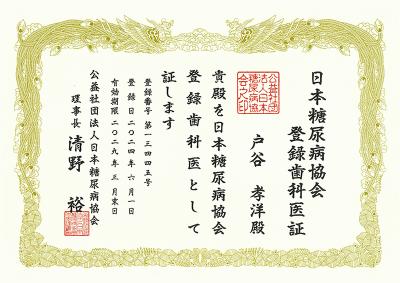 日本糖尿病協会
登録歯科医証
戸谷 孝洋殿
公益社団
法人日本
糖尿病協
会之印
貴殿を日本糖尿病協会
登録歯科医として
証します
登録番号 第一三四四五号
登録日 二〇二四年 六月一日
有効期限 二〇二九年 三月末日
公益社団法人日本糖尿病協会
理事長 清野 裕